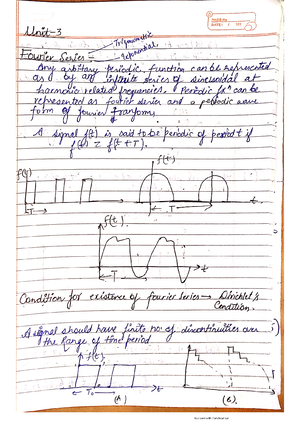 Unit-3
Trigonometric
Fourier Series :-
Exponential
Any arbitrary periodic function can be represented
as by an infinite series of sinusoidal at
harmonic related frequencies. Periodic fxn can be
represented as fourier series and a periodic wave
form of fourier transform.
A signal f(t) is said to be periodic of period T if
f(t) = f(t+T).
f(t)
f(t)
T
t
T
t
f(t)
T
t
Condition for existence of fourier series → Dirichlet's
Condition.
A signal should have finite no. of discontinuities over
the Range of time period
f(t)
T₀
t
(A)